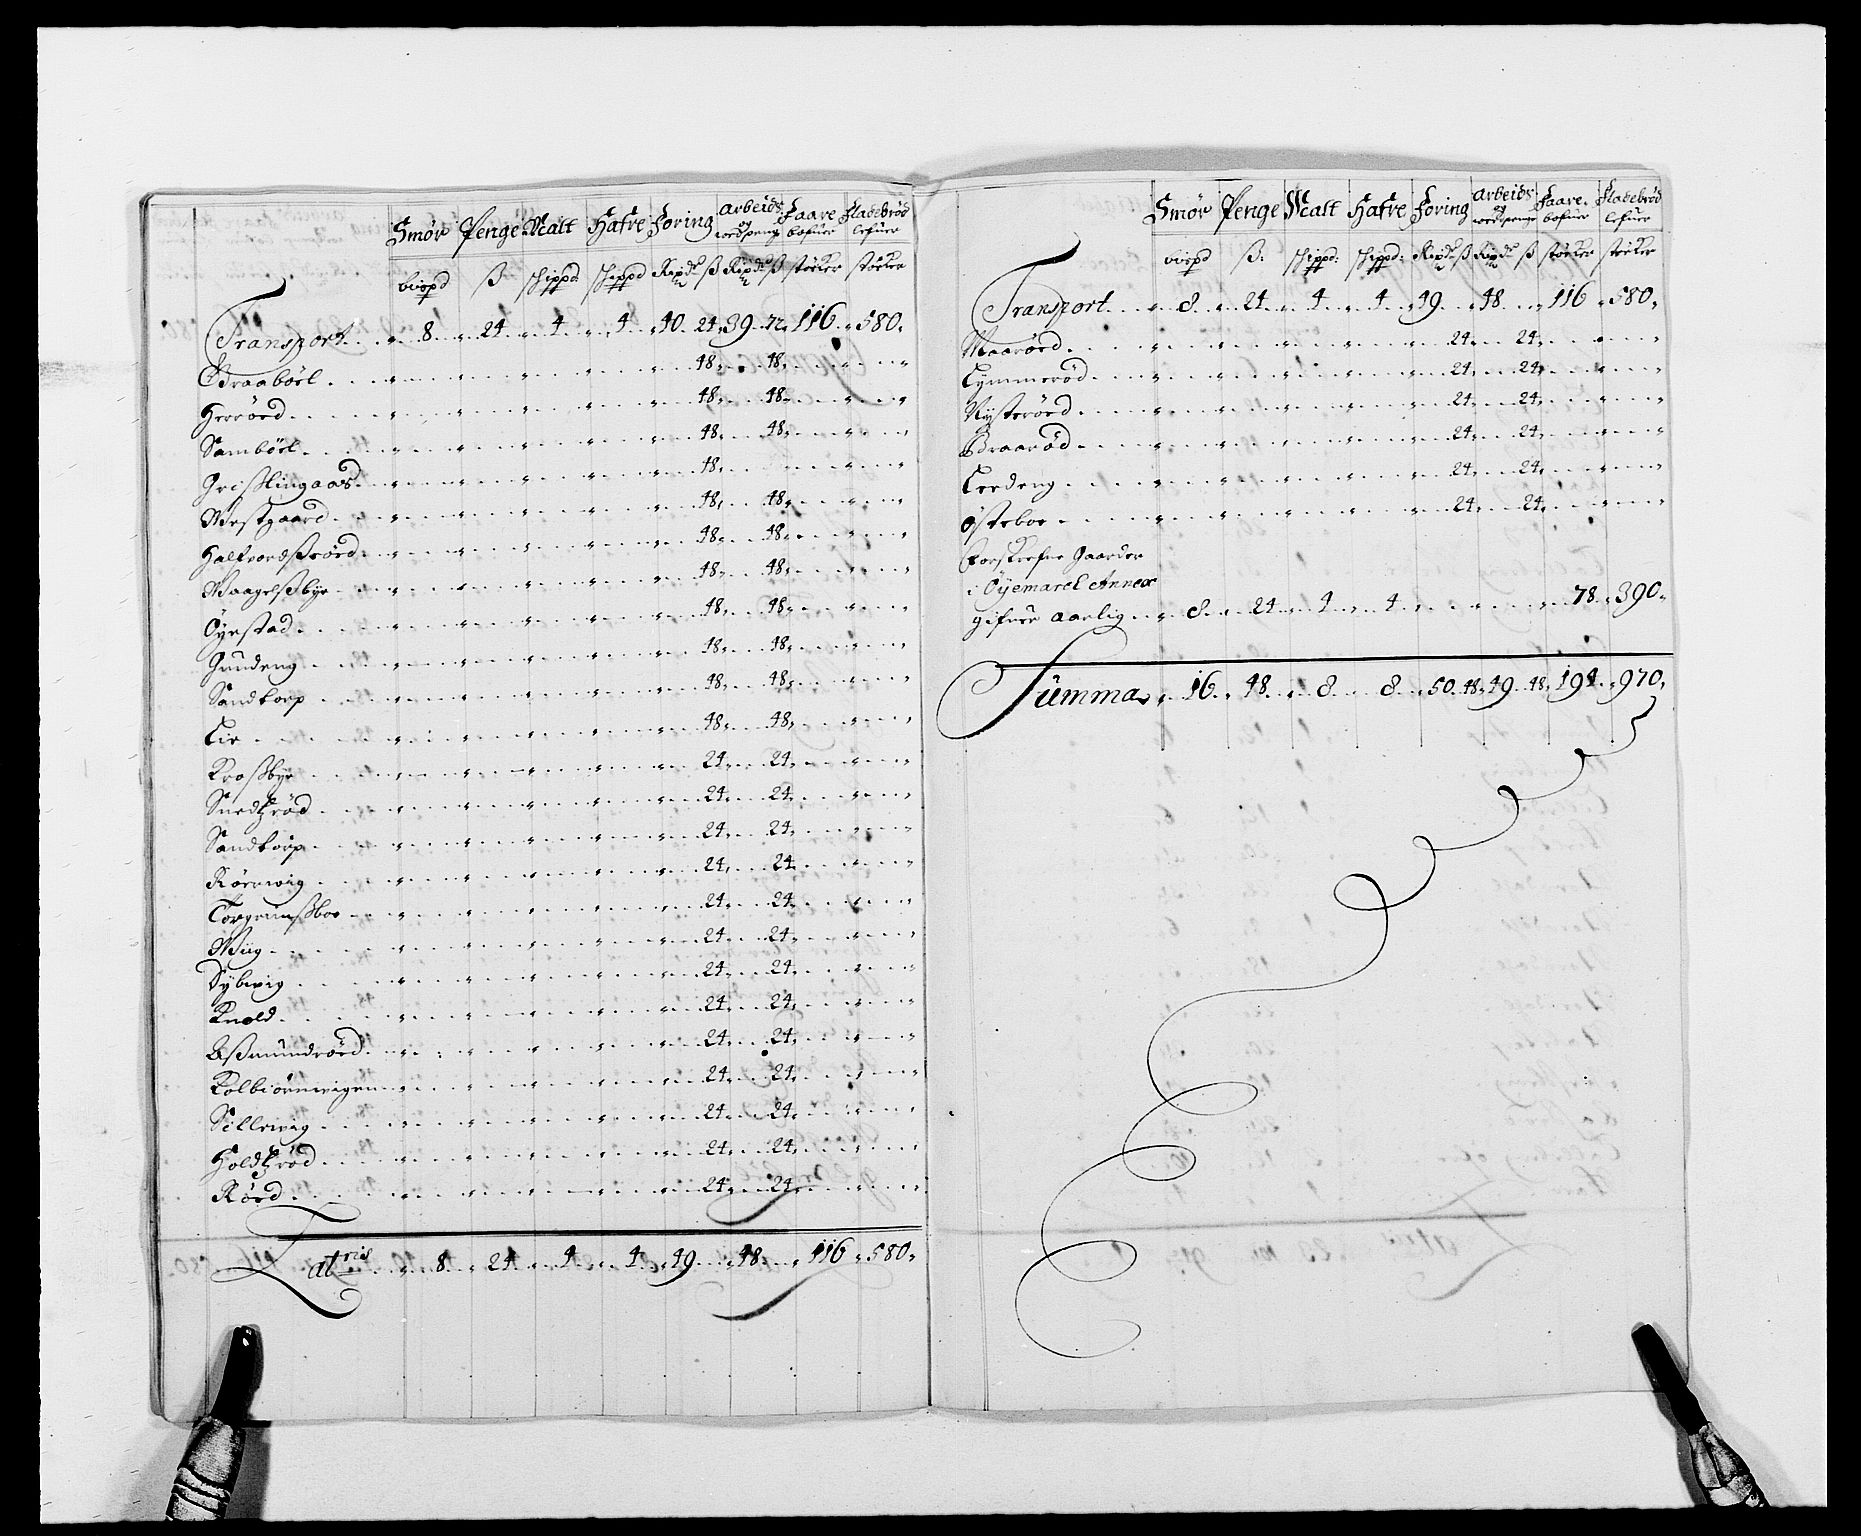 Smør Penge Malt Hafre Foring Arbeids og wedpeng Faare bofuer Fladebrød lefuer
bispd ß schippd schippd Rixdl ß Rixdl ß støcker støcker
Transport 8 24 4 4 40 24 39 72 116 580
Braabøel 48 48
Herrøed 48 48
Sambøel 48 48
Grißlingaas 48
Westgaard 48 48
Halfvordßrøed 48 48
Waagelßbye 48 48
Øyestad 48 48
Gundeng 48 48
Sandtorp 48 48
Lie 48 48
Kroßbye 24 24
Snedhrød 24 24
Sandtorp 24 24
Rørwig 24 24
Torgrimßboe 24 24
Wiig 24 24
Sybwig 24 24
Knold 24 24
Aßmundrøed 24 24
Kolbiørnwigen 24 24
Sillewig 24 24
Holdhrød 24 24
Røed 24 24
Latris 8 24 4 4 49 48 116 580
Smør Penge Malt Hafre Foring Arbeids og wedpenge Faare bofuer Fladebrød lefuer
bispd ß: schippd: schippd: Rixdl ß Rixdl ß støcker støcker
Transport 8 24 4 4 49 48 116 580
Maarøed 24 24
Lymmerød 24 24
Nysterøed 24 24
Braarød 24 24
Leedeng 24 24
Østeboe 24 24
Forskrefne Gaarder
i Øyemarck Annex
gifuer aarlig 8 24 4 4 78 390
Summa 16 48 8 8 50 48 49 48 194 970